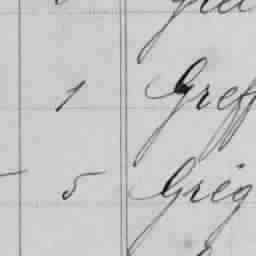 1 Greff
5 Grég